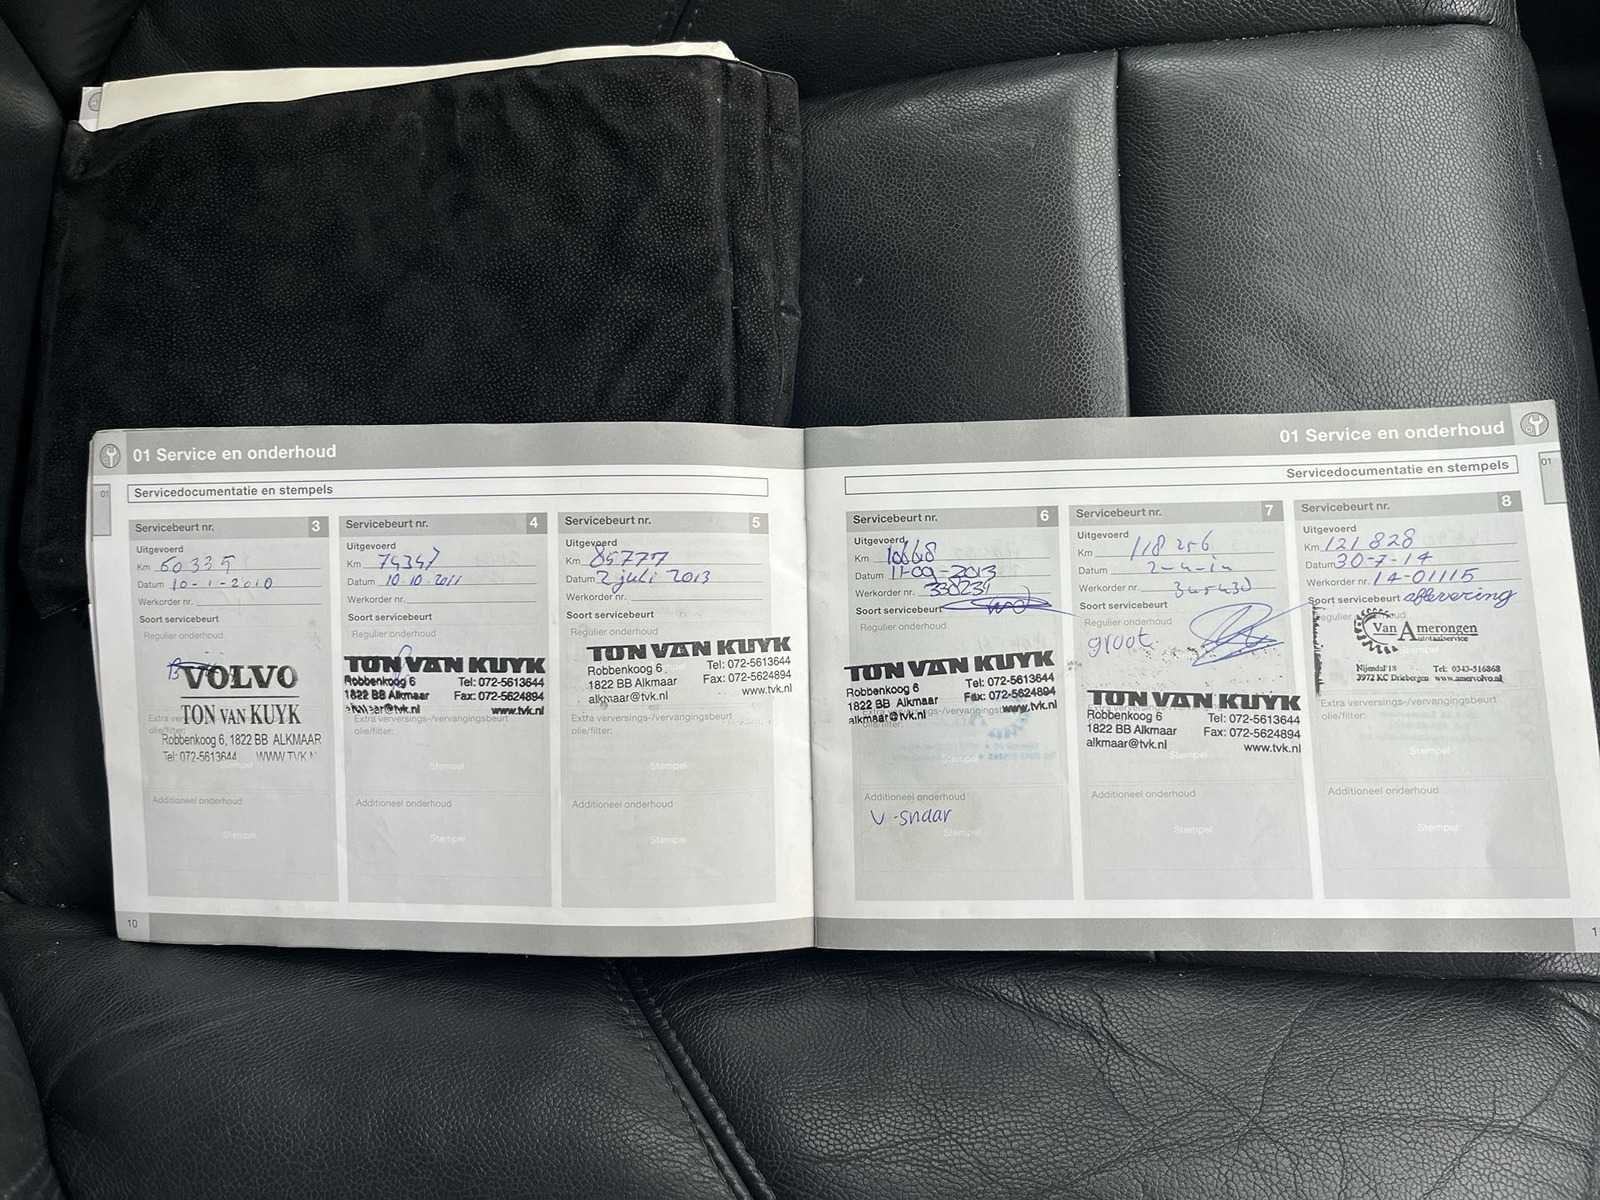 01 Service en onderhoud
01
Servicedocumentatie en stempels
Servicebeurt nr. 3
Uitgevoerd
Km 60335
Datum 10-1-2010
Werkorder nr.
Soort servicebeurt
Regulier onderhoud
B
VOLVO
TON VAN KUYK
Extra olie/filter:
Robbenkoog 6, 1822 BB ALKMAAR
Tel: 072-5613644 WWW.TVK.N
Stempel
Additioneel onderhoud
Stempel
10
Servicebeurt nr. 4
Uitgevoerd
Km 74347
Datum 10.10.2011
Werkorder nr.
Soort servicebeurt
Regulier onderhoud
TON VAN KUYK
Robbenkoog 6 Tel: 072-5613644
1822 BB Alkmaar Fax: 072-5624894
alkmaar@tvk.nl www.tvk.nl
Extra verversings-/vervangingsbeurt
olie/filter:
Stempel
Additioneel onderhoud
Stempel
Servicebeurt nr. 5
Uitgevoerd
Km 85777
Datum 2 juli 2013
Werkorder nr.
Soort servicebeurt
Regulier onderhoud
TON VAN KUYK
Robbenkoog 6 Tel: 072-5613644
1822 BB Alkmaar Fax: 072-5624894
alkmaar@tvk.nl www.tvk.nl
Extra verversings-/vervangingsbeurt
olie/filter:
Stempel
Additioneel onderhoud
Stempel
01 Service en onderhoud
01
Servicedocumentatie en stempels
Servicebeurt nr. 6
Uitgevoerd
Km
Datum 11-09-2013
Werkorder nr. 330231
Soort servicebeurt
Regulier onderhoud
TON VAN KUYK
Robbenkoog 6 Tel: 072-5613644
1822 BB Alkmaar Fax: 072-5624894
alkmaar@tvk.nl www.tvk.nl
Extra verversings-/vervangingsbeurt
olie/filter:
Stempel
Additioneel onderhoud
V-snaar
Stempel
Servicebeurt nr. 7
Uitgevoerd
Km 118256
Datum 2-4-14
Werkorder nr. 345430
Soort servicebeurt
Regulier onderhoud
groot
TON VAN KUYK
Robbenkoog 6 Tel: 072-5613644
1822 BB Alkmaar Fax: 072-5624894
alkmaar@tvk.nl www.tvk.nl
Stempel
Additioneel onderhoud
Stempel
Servicebeurt nr. 8
Uitgevoerd
Km 121828
Datum 30-7-14
Werkorder nr. 14-01115
Soort servicebeurt aflevering
Regulier onderhoud
Van Amerongen
Autotaalservice
Stempel
Nijendal 18 Tel: 0343-516868
3972 KC Driebergen www.amervolvo.nl
Extra verversings-/vervangingsbeurt
olie/filter:
Stempel
Additioneel onderhoud
Stempel